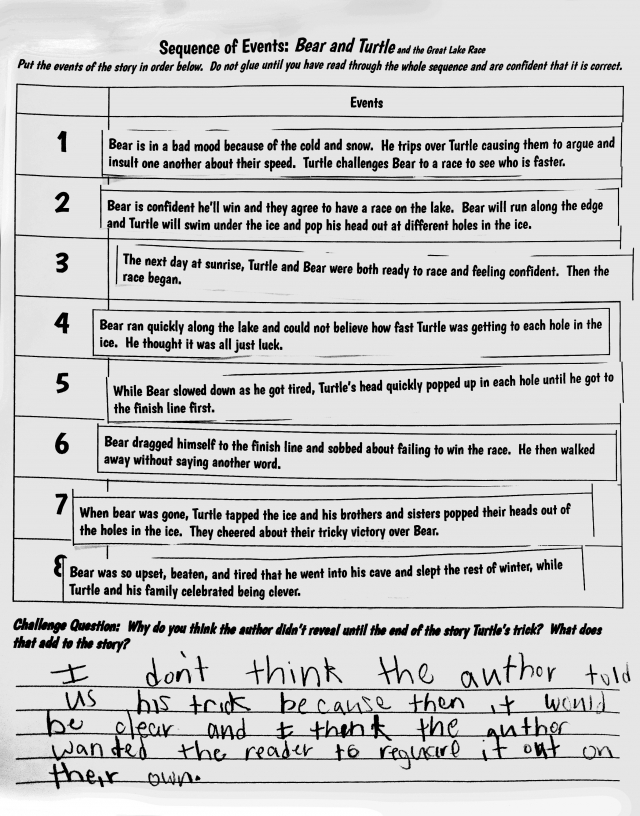 Sequence of Events: Bear and Turtle and the Great Lake Race
Put the events of the story in order below. Do not glue until you have read through the whole sequence and are confident that it is correct.
Events
1
Bear is in a bad mood because of the cold and snow. He trips over Turtle causing them to argue and
insult one another about their speed. Turtle challenges Bear to a race to see who is faster.
2
Bear is confident he'll win and they agree to have a race on the lake. Bear will run along the edge
and Turtle will swim under the ice and pop his head out at different holes in the ice.
3
The next day at sunrise, Turtle and Bear were both ready to race and feeling confident. Then the
race began.
4
Bear ran quickly along the lake and could not believe how fast Turtle was getting to each hole in the
ice. He thought it was all just luck.
5
While Bear slowed down as he got tired, Turtle's head quickly popped up in each hole until he got to
the finish line first.
6
Bear dragged himself to the finish line and sobbed about failing to win the race. He then walked
away without saying another word.
7
When bear was gone, Turtle tapped the ice and his brothers and sisters popped their heads out of
the holes in the ice. They cheered about their tricky victory over Bear.
8
Bear was so upset, beaten, and tired that he went into his cave and slept the rest of winter, while
Turtle and his family celebrated being clever.
Challenge Question: Why do you think the author didn't reveal until the end of the story Turtle's trick? What does
that add to the story?
I don't think the author told
us his trick because then it would
be clear and I think the author
wanted the reader to reguire it out on
their own.